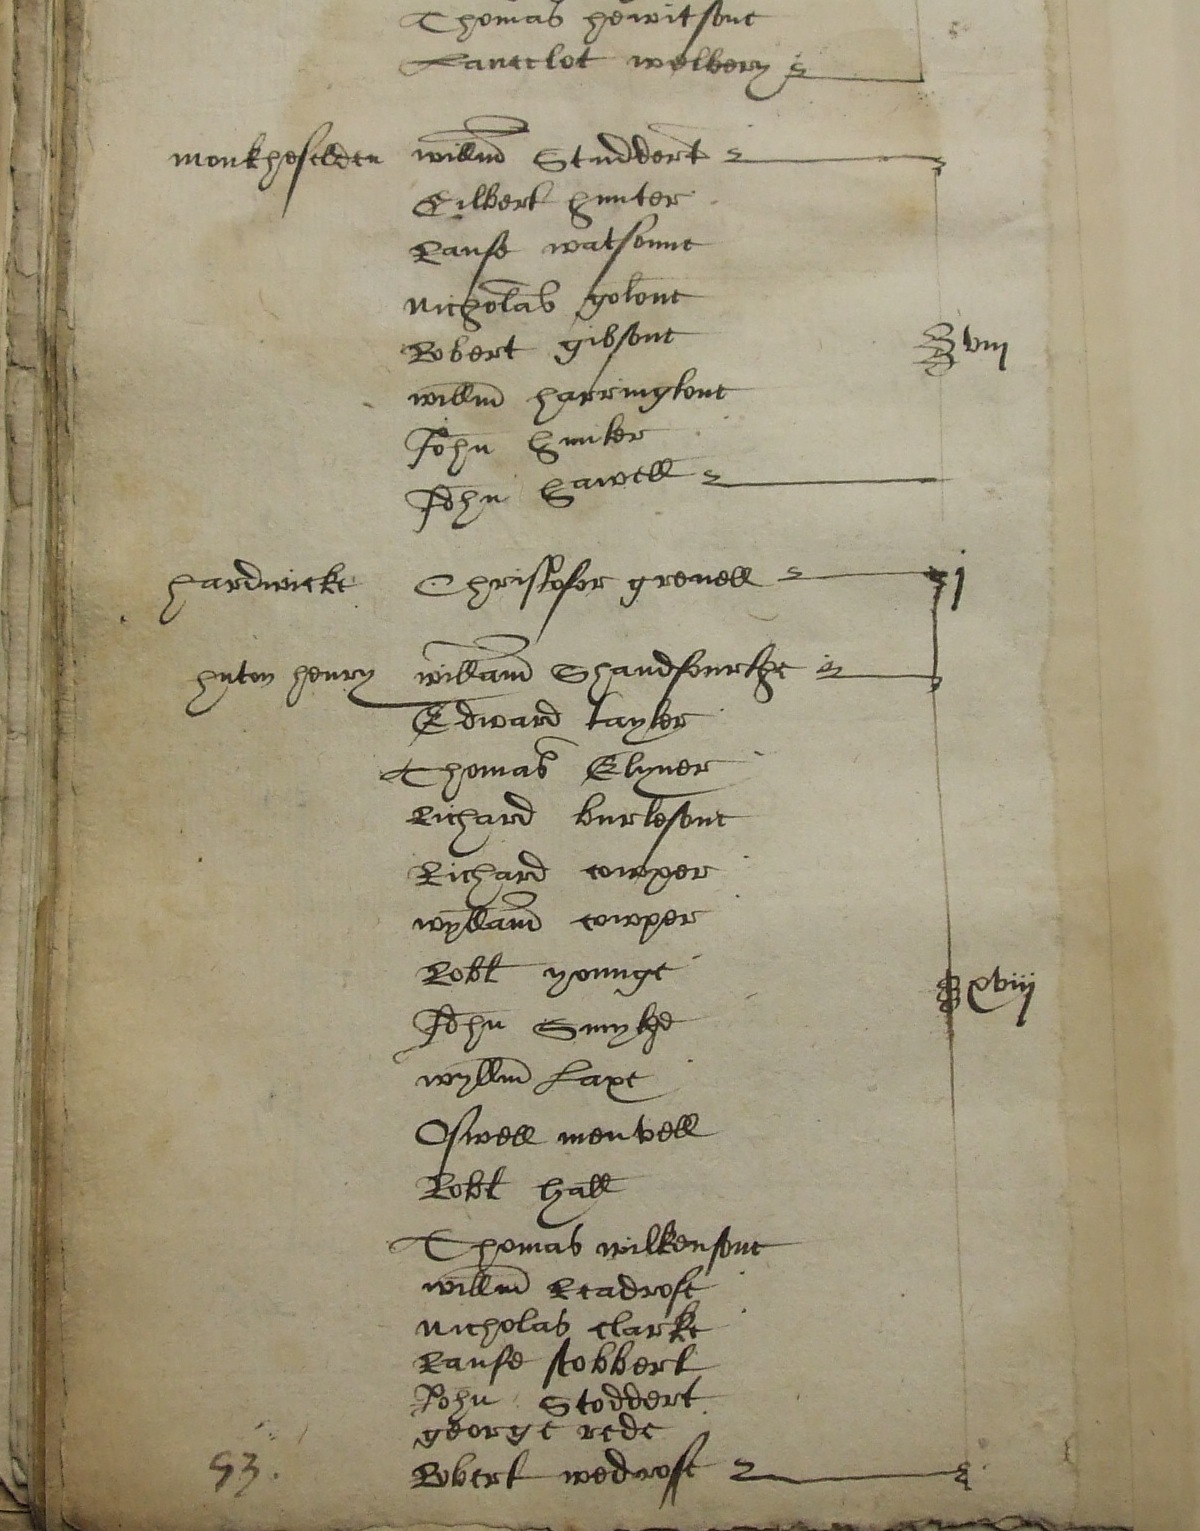 Thomas hewitsone
Lancelot welbery
monkheselden willm Studdert
Gilbert hunter
Raufe watsonne
Nicholas golone
Robert gibsone viij
willm harringtone
John hunter
John Hawell
hardwicke Christofer grenell j
hyton henry willam Shandfourthe
Edward tayler
Thomas Elyner
Richard burlesone
Richard cowper
wyllam cowper
Robt younge xviij
John Smythe
wyllm Laxe
Oswell menvell
Robt hall
Thomas wilkensone
willm Readrose
Nicholas clarke
Raufe stobbert
John Stoddert
george rede
Robert wedrose
53.